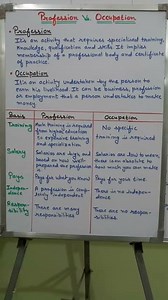 Profession Vs Occupation
• Profession
It's an activity that requires specialized training,
knowledge, qualification and skills. It implies
membership of a professional body and certificate
of practice.
• Occupation
It's an activity undertaken by the person to
earn his livelihood. It can be business, profession
or employment that a person undertakes to make
money.
Basis Profession Occupation
Training
from higher education
is expensive training
and specialization
No specific
training is required
Salary
Salaries are high and
based on how well
the profession
Salaries are low to
there is no
how much you can make
Pays Pays for what you know Pays for your time
Indepen-
dence
A profession is comp-
letely independent
There is no indepen-
dence
Respons-
ibility
There are many
responsibilities
There are no respons-
ibilities.